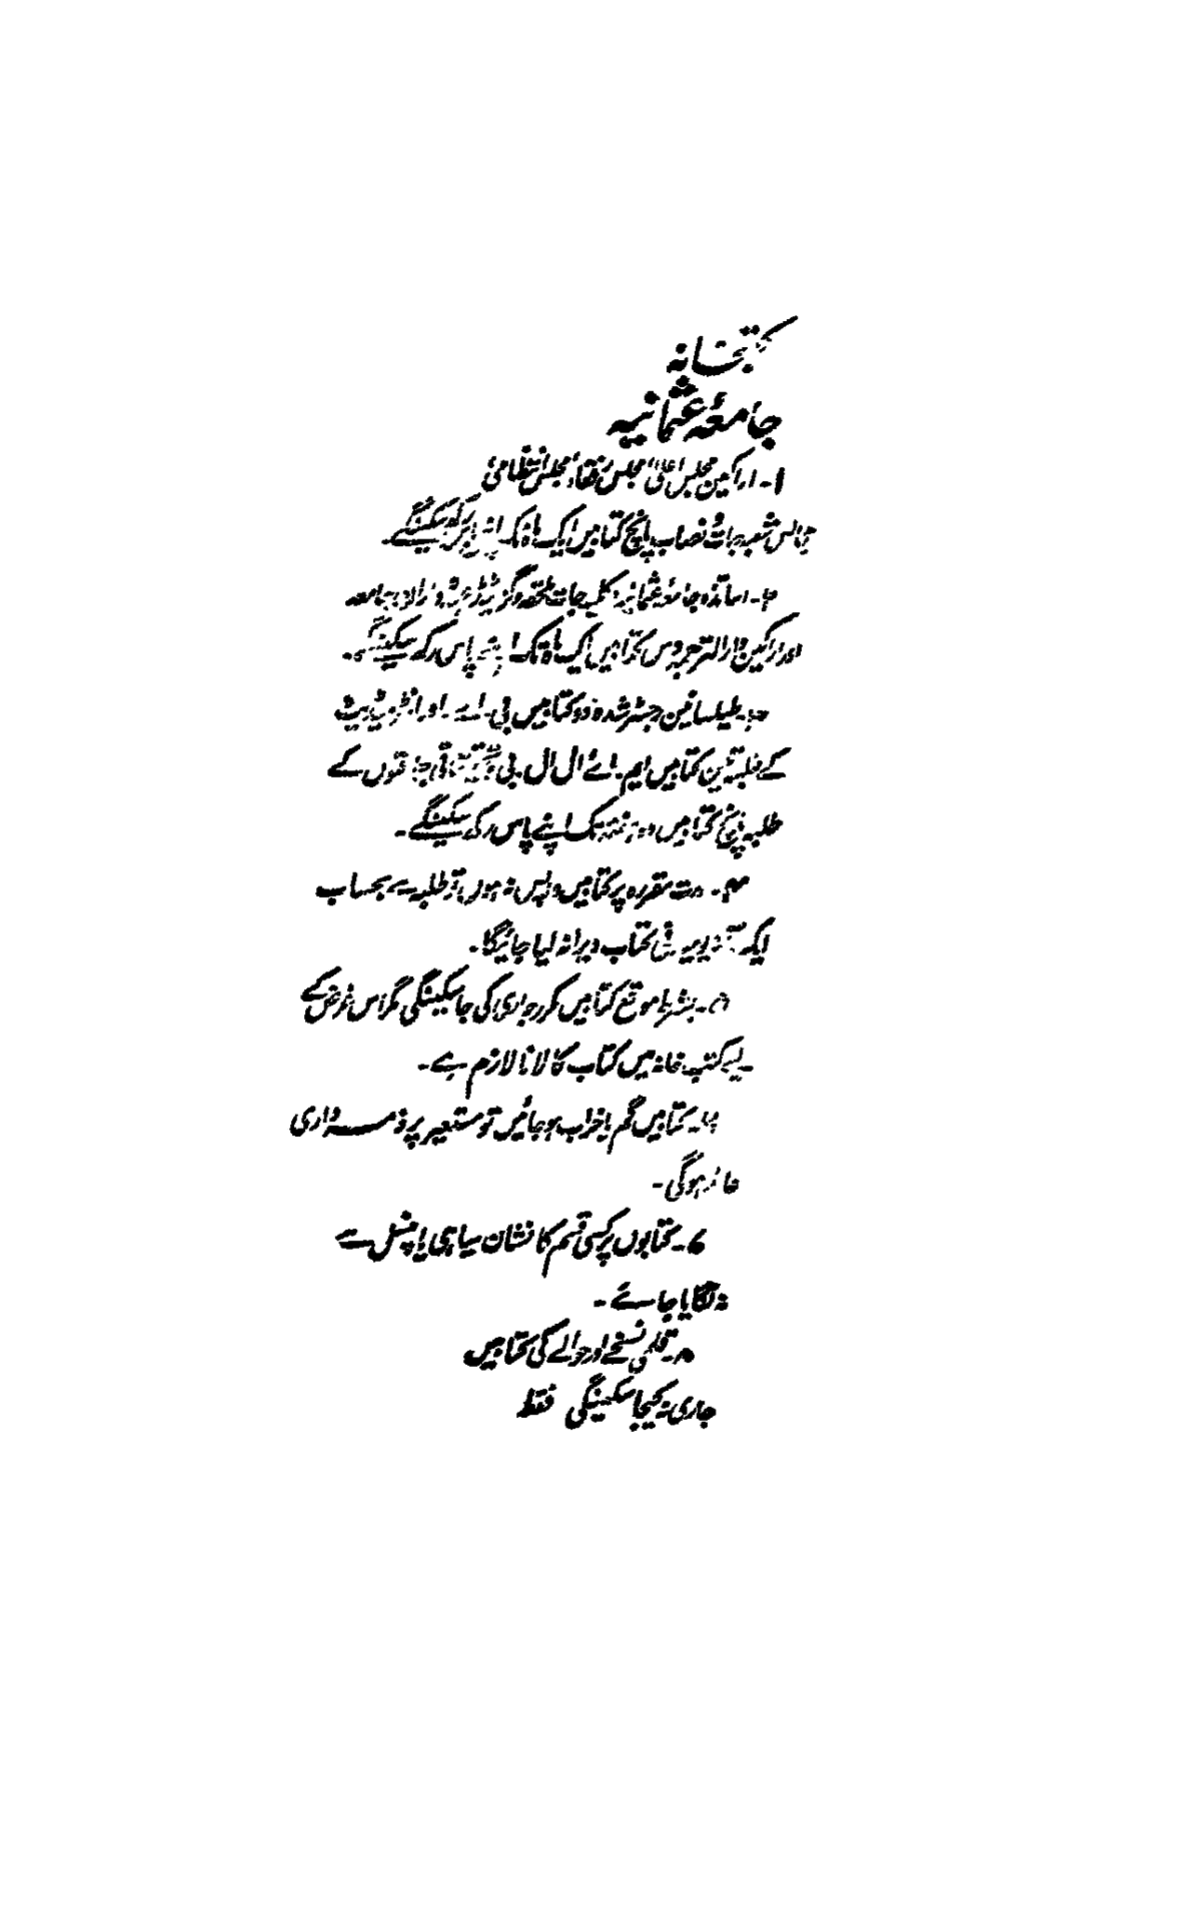 کتبخانہ
جامعۂ عثمانیہ
۱۔ اراکین مجلس اعلیٰ، مجلس رفقاء، مجلس انتظامی
مجالس شعبہ جات نصاب پانچ کتابیں ایک ماہ تک اپنے پاس رکھ سکینگے۔
۲۔ اساتذہ جامعہ عثمانیہ، کلیہ جات ملحقہ و گزیٹڈ عہدہ داران جامعہ
اور اراکین دارالترجمہ دس کتابیں ایک ماہ تک اپنے پاس رکھ سکینگے۔
۳۔ طیلسانین رجسٹر شدہ دو کتابیں بی۔ اے۔ اور انٹرمیڈیٹ
کے طلبہ تین کتابیں ایم۔ اے ال ال۔ بی جماعتوں کے
طلبہ پانچ کتابیں دو ہفتہ تک اپنے پاس رکھ سکینگے۔
۴۔ مدت مقررہ پر کتابیں واپس نہ ہوں تو طلبہ سے بحساب
ایک آنہ یومیہ فی کتاب دیرانہ لیا جائیگا۔
۵۔ بشرط موقع کتابیں مکرر جاری کی جا سکینگی مگر اس غرض کے
لیے کتب خانہ میں کتاب کا لانا لازم ہے۔
۶۔ کتابیں گم یا خراب ہو جائیں تو مستعیر پر ذمہ داری
عائد ہوگی۔
۷۔ کتابوں پر کسی قسم کا نشان سیاہی یا پنسل سے
نہ لگایا جائے۔
۸۔ قلمی نسخے اور حوالے کی کتابیں
جاری نہ کیجا سکینگی فقط